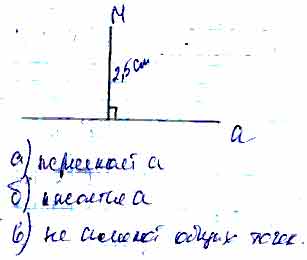 М
2,5 см
а
а) пересекает а
б) касается а
в) не имеет общих точек.